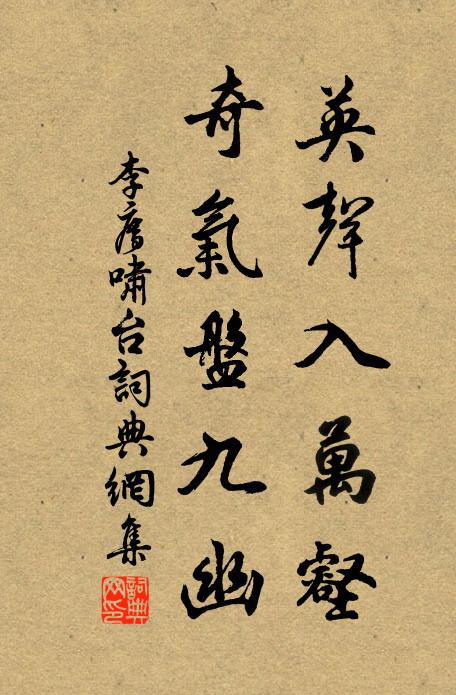 英聲入萬壑
奇氣盤九幽
李廌嘯台詞典網集
詞典
网印